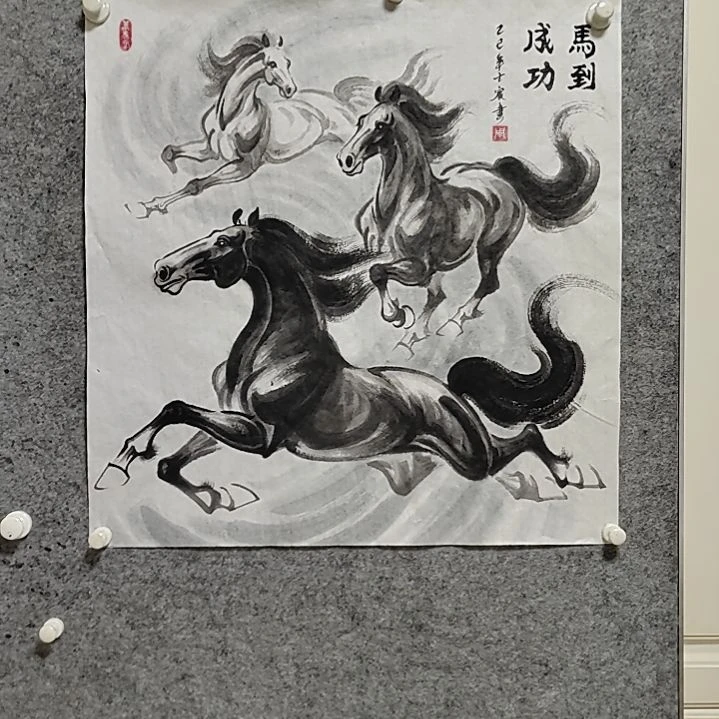 馬到
成功
乙巳年十宸書